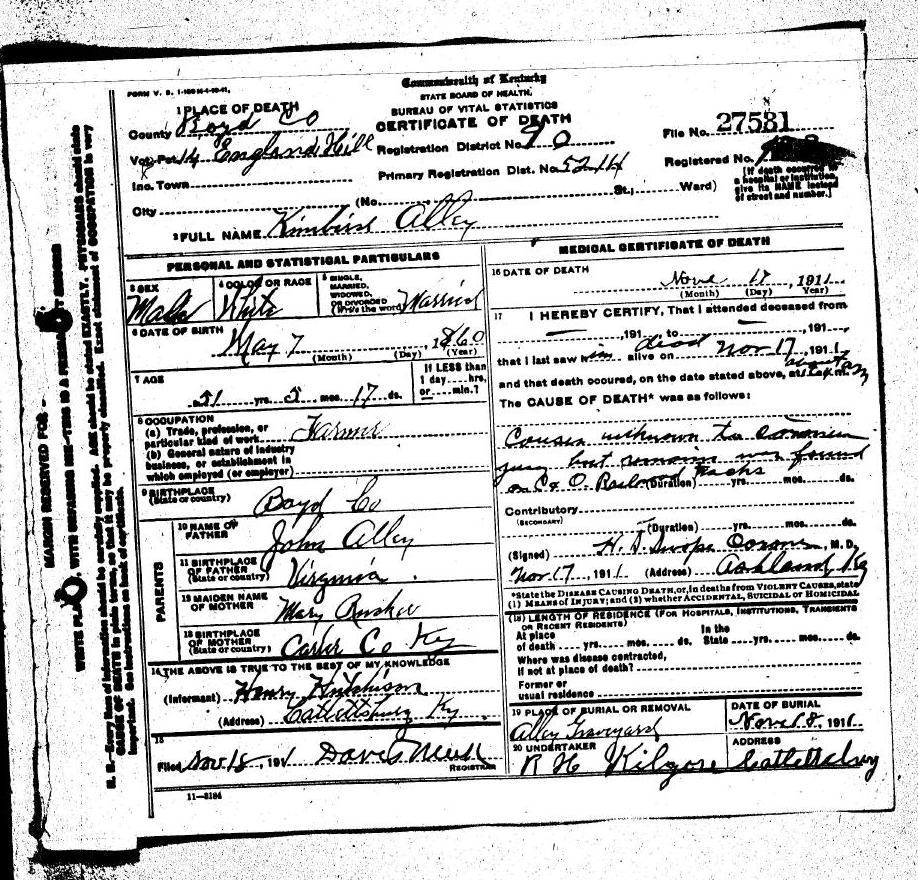 FORM V. S. 1-
Commonwealth of Kentucky
STATE BOARD OF HEALTH.
BUREAU OF VITAL STATISTICS
CERTIFICATE OF DEATH
1 PLACE OF DEATH
County Boyd Co
Vot. Pct. 14 England Hill
Registration District No. 90
File No. 27581
Inc. Town
Primary Registration Dist. No. 5214
Registered No.
City (No. St.; Ward)
[If death occurred in a hospital or institution, give its NAME instead of street and number.]
2 FULL NAME Alley
PERSONAL AND STATISTICAL PARTICULARS
3 SEX Male
4 COLOR OR RACE White
5 SINGLE, MARRIED, WIDOWED, OR DIVORCED (Write the word) Married
6 DATE OF BIRTH
May 7, 1860
(Month) (Day) (Year)
7 AGE
51 yrs. 5 mos. 17 ds.
If LESS than 1 day....hrs. or....min.?
8 OCCUPATION
(a) Trade, profession, or particular kind of work Farmer
(b) General nature of industry business, or establishment in which employed (or employer)
9 BIRTHPLACE (State or country) Boyd Co
PARENTS
10 NAME OF FATHER John Alley
11 BIRTHPLACE OF FATHER (State or country) Virginia.
12 MAIDEN NAME OF MOTHER Mary
13 BIRTHPLACE OF MOTHER (State or country) Carter Co Ky
14 THE ABOVE IS TRUE TO THE BEST OF MY KNOWLEDGE
(Informant) Henry Hutchison
(Address) Catlettsburg Ky.
15
Filed Nov 18, 1911
REGISTRAR
11-3184
MEDICAL CERTIFICATE OF DEATH
16 DATE OF DEATH
Nov 17, 1911
(Month) (Day) (Year)
17 I HEREBY CERTIFY, That I attended deceased from
—, 191 to —, 191
that I last saw him dead alive on Nov 17, 1911
and that death occured, on the date stated above, at about
The CAUSE OF DEATH* was as follows:
Cause unknown to coroners
jury but remains was found
on C & O. Railroad tracks
(Duration) yrs. mos. ds.
Contributory
(SECONDARY)
(Duration) yrs. mos. ds.
(Signed) H. D. Swope Coroner, M. D.
Nov 17, 1911 (Address) Ashland, Ky
*State the DISEASE CAUSING DEATH, or, in deaths from VIOLENT CAUSES, state
(1) MEANS OF INJURY; and (2) whether ACCIDENTAL, SUICIDAL or HOMICIDAL
(18) LENGTH OF RESIDENCE (FOR HOSPITALS, INSTITUTIONS, TRANSIENTS OR RECENT RESIDENTS)
At place of death yrs. mos. ds. In the State yrs. mos. ds.
Where was disease contracted,
If not at place of death?
Former or usual residence
19 PLACE OF BURIAL OR REMOVAL
Alley Graveyard
DATE OF BURIAL
Nov 18, 1911
20 UNDERTAKER
R H Kilgore
ADDRESS
Catlettsburg
MARGIN RESERVED FOR
N. B.—Every item of information should be carefully supplied. AGE should be stated EXACTLY. PHYSICIANS should state
CAUSE OF DEATH in plain terms, so that it may be properly classified. Exact statement of OCCUPATION is very
important. See instructions on back of certificate.